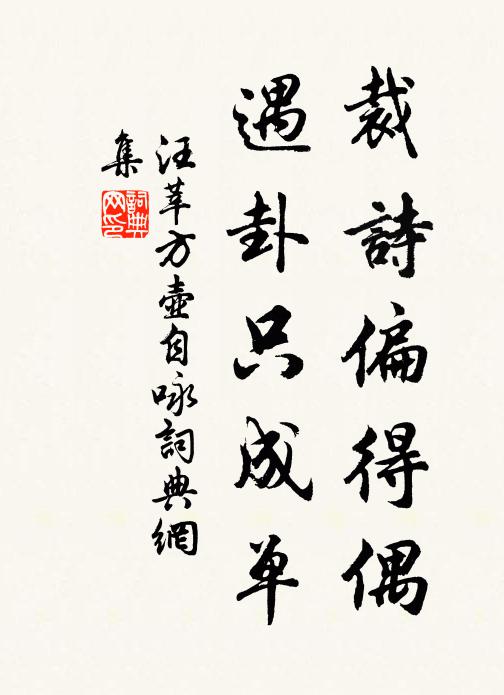 裁詩偏得偶
遇卦只成单
汪莘方壺自咏詞典網
集
詞典網印